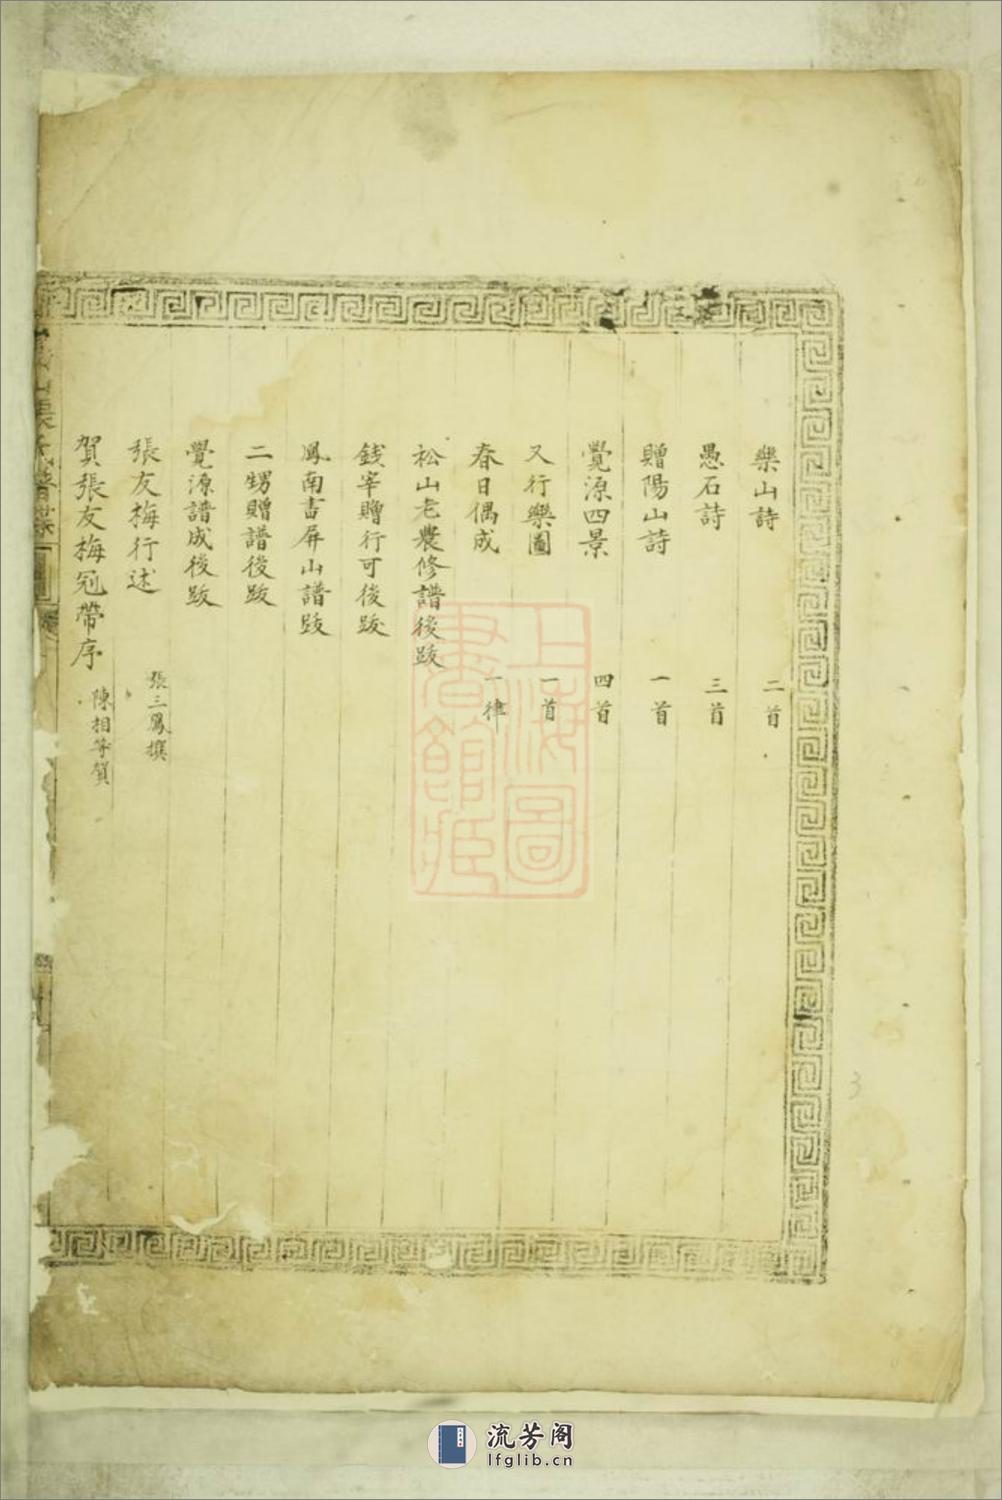 樂山詩 二首
愚石詩 三首
贈陽山詩 一首
覺源四景 四首
又行樂圖 一首
春日偶成 一律
松山老農修譜後跋
錢宰贈行可後跋
鳳南書屏山譜跋
二甥贈譜後跋
覺源譜成後跋
張友梅行述 張三鳳撰
賀張友梅冠帶序 陳相等賀
上海圖書館藏
3
流芳阁
lfglib.cn